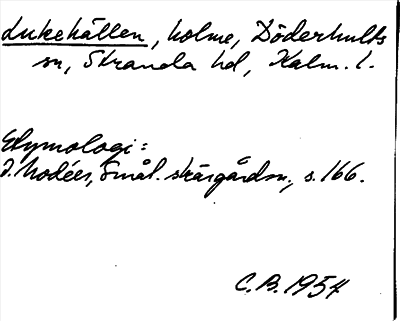 Lukehällen, holme, Döderhults
sn, Stranda hd, Kalm. l.
Etymologi:
I. Modéer, Smål. skärgårdsn., s. 166.
C.B. 1954